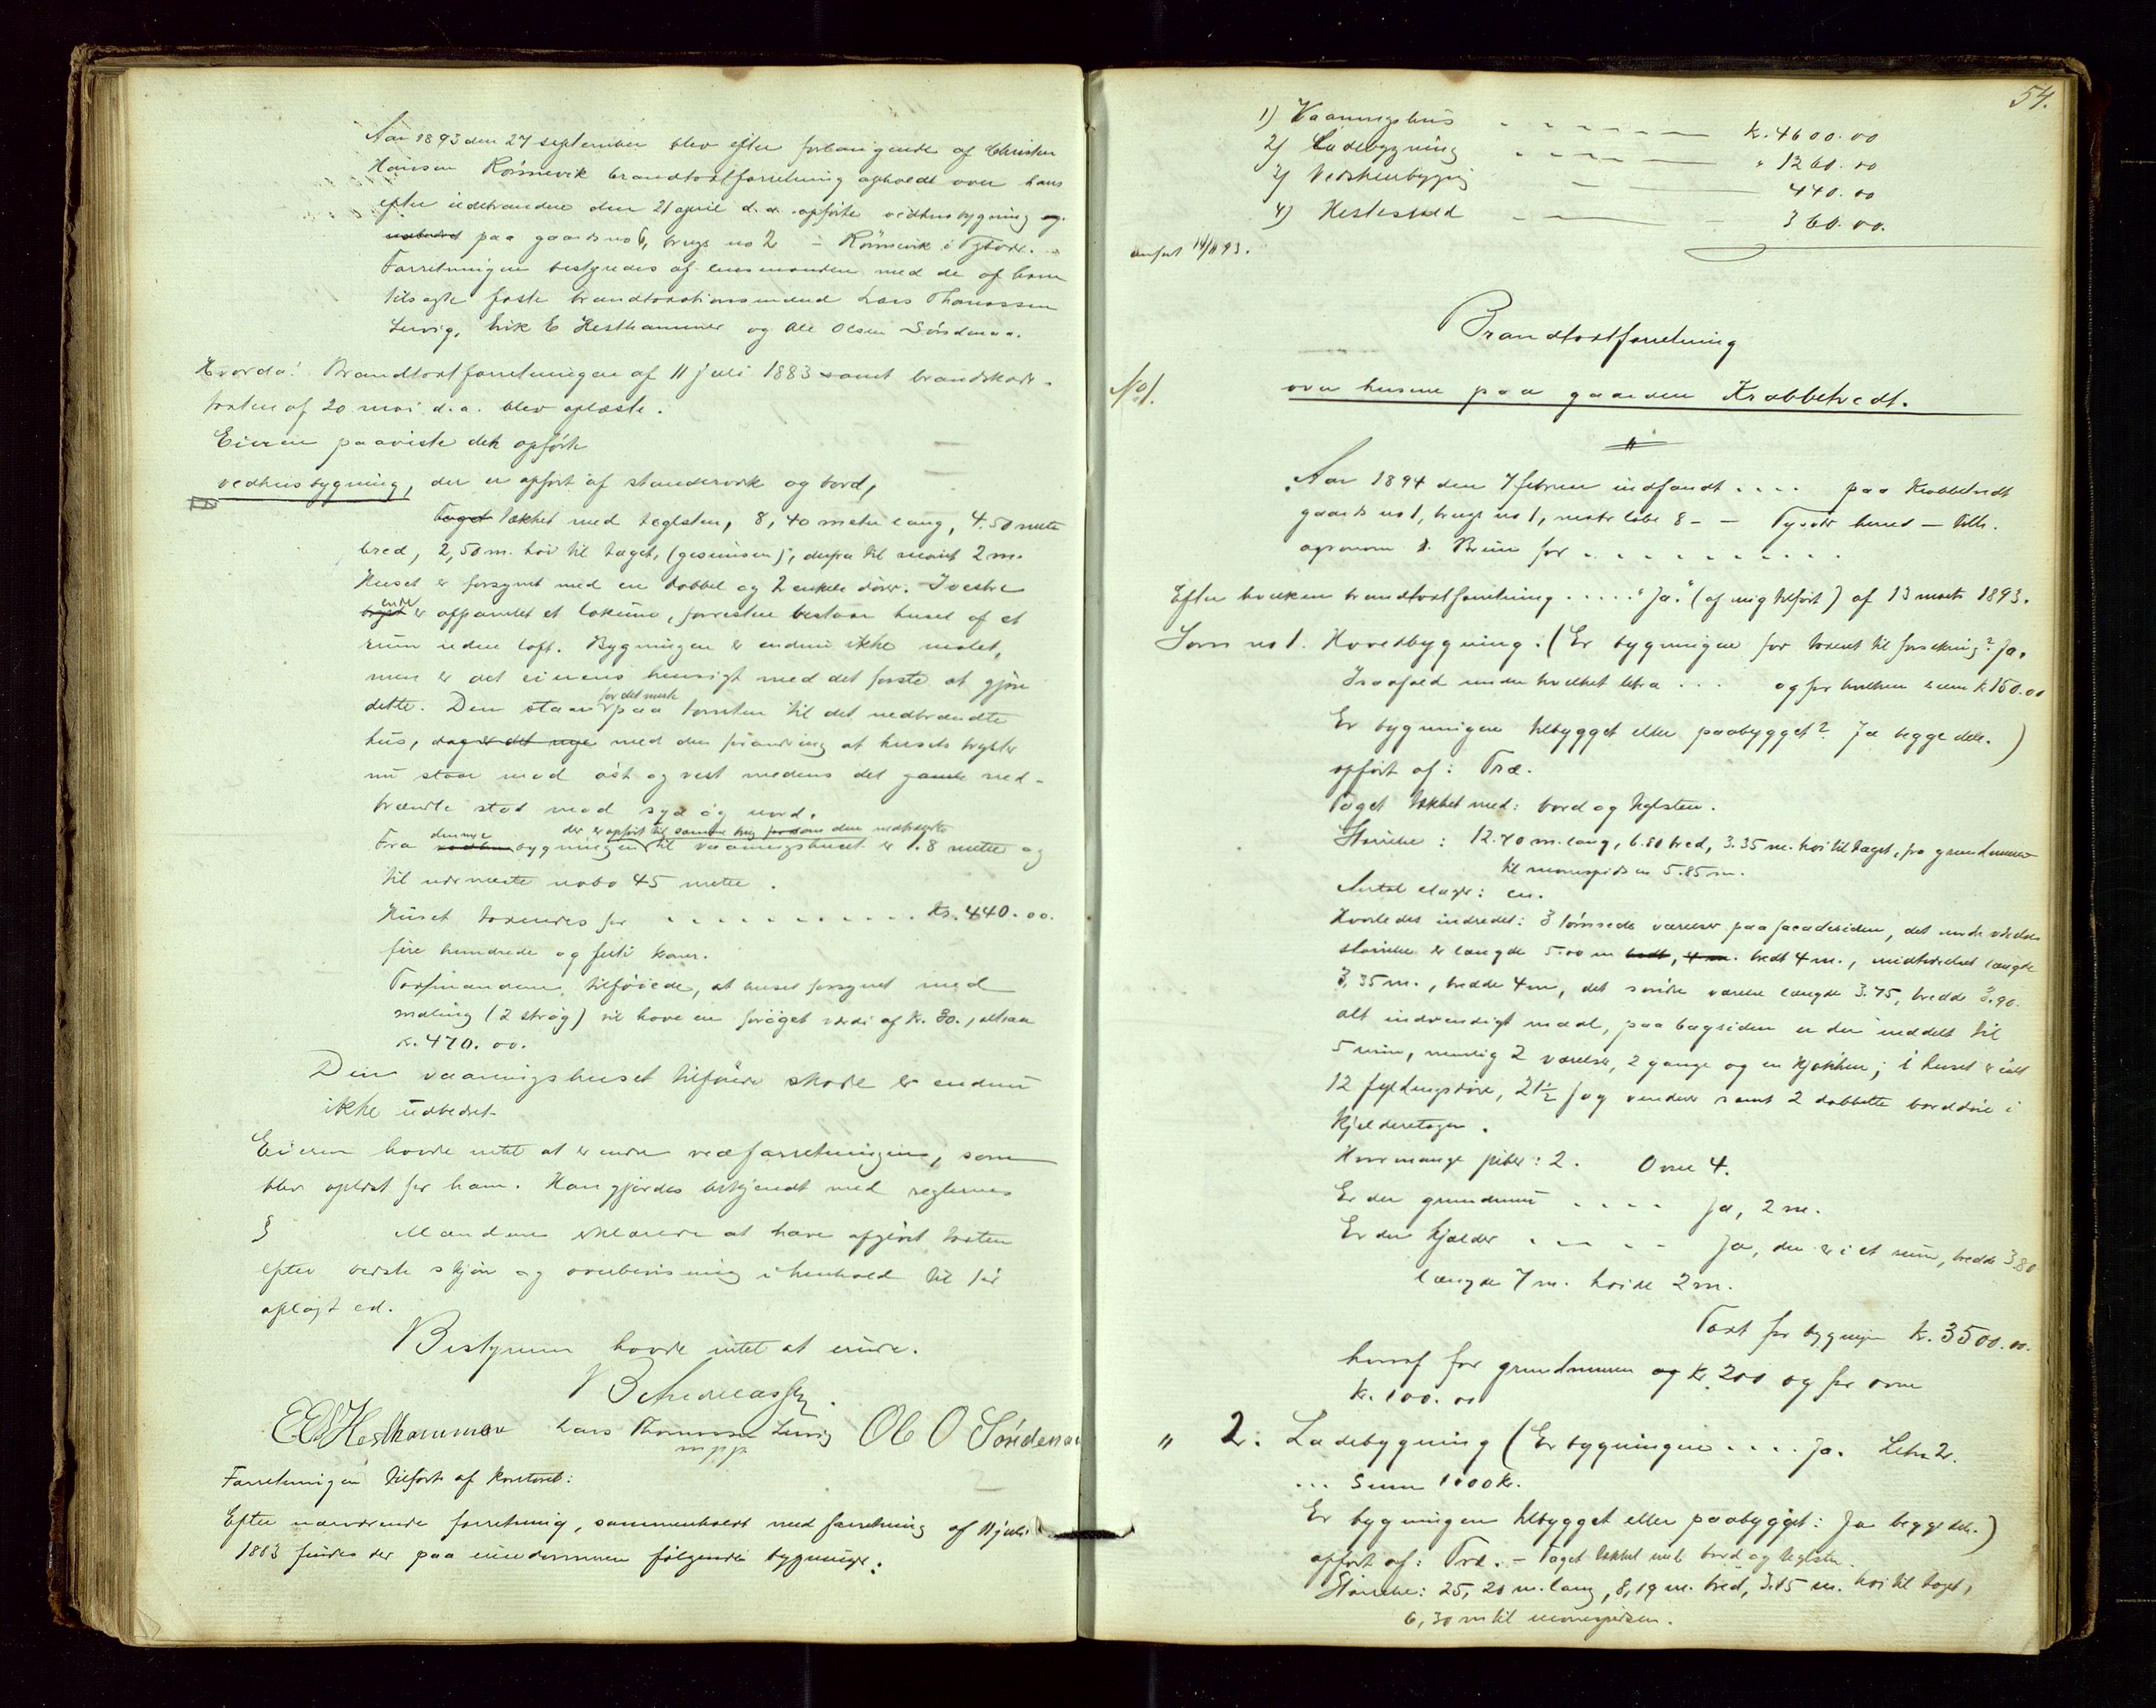 Aar 1893 den 27 september blev efter forlangende af Christen
Hansen Rönnevik brandtaxtforretning afholdt over hans
efter ildebrandene den 21 april d. a. opførte vedhusbygning og
paa gaardsno 6, brugs no 2 - Rönnevik i Tysvær.
Forretningen bestyredes af lensmanden med de af ham
tilsagte faste brandtaxationsmænd Lars Thomassen
Lervig, Erik E Hesthammer og Ole Olsen Söndenaa.
Hvorda: Brandtaxtforretningen af 11 juli 1883 samt brandskade-
taxten af 20 mai d. a. blev oplæste.
Eieren paaviste det opførte
vedhusbygning, der er opført af standerværk og bord,
Taget tækket med teglsten, 8,40 meter lang, 4.50 meter
bred, 2,50 m. høi til taget, (gesimsen), derfra til mønet 2 m.
Huset er forsynet med en dobbel og 2 enkele döre. I vestre
ende er afpanelet et lokum, forresten bestaar huset af et
rum uden loft. Bygningen er endnu ikke malet,
men er det eierens hensigt med det første at gjøre
dette. Den staar for det meste paa tomten til det nedbrændte
hus, dog er det nye med den forandring at husets gavler
nu staar mod öst og vest medens det gamle ned-
brændte stod mod syd og nord.
der er opført til samme brug som den nedbrændte
Fra denne bygningen til vaaningshuset er 1.8 meter og
til nærmeste nabo 45 meter.
Huset taxeredes for . . . . . . . . . . Kr. 440.00.
fire hundrede og firti kroner.
Taxtmændene tilföiede, at huset forsynet med
maling (2 strög) vil have en forøget værdi af Kr. 30., altsaa
Kr. 470.00.
Den vaaningshuset tilføiede skade er endnu
ikke udbedret.
Eieren havde intet at erindre ved forretningen, som
blev oplæst for ham. Han gjordes bekjendt med reglernes
§ Mændene erklærede at have afgivet taxten
efter bedste skjøn og overbevisning i henhold til før
aflagt ed.
Bestyreren havde intet at erindre.
B Andreassen.
E E Hesthammer Lars Thomassen Lervig Ole O Söndenaa
m. p. p.
Forretningen tilført af kontoret:
Efter nærværende forretning, sammenholdt med forretning af 11 juli
1883 findes der paa eiendommen følgende bygninger:
54.
1) Vaaningshus - - - - - Kr. 4600.00
2) Ladebygning - - - - - " 1260.00
3) Vedskurbygnig - 440.00
4) Hestestald - - 360.00.
anført 14/11 93.
Brandtaxtforretning
No 1. over husene paa gaarden Krabbetvedt.
Aar 1894 den 7 februar indfandt . . . . paa Krabbetvedt
gaards no 1, brugs no 1, matr løbe 8 - - Tysvær herred - tilh.
agronom Bruun for . . . . . . . . . .
Efter hvilken brandtaxtforretning . . . . . "Ja." (af mig tilført) af 13 marts 1893.
Som no 1. Hovedbygning: (Er bygningen før taxeret til forsekring? Ja.
I saafald under hvilket litra . . . og for hvilken sum Kr 150.00
Er bygningen tilbygget eller paabygget? Ja begge dele.)
opført af: Træ.
Taget tækket med: bord og teglsten.
Størrelse: 12.70 m. lang, 6.80 bred, 3.35 m. høi til taget, fra grundmuren
til mønespidsen 5.85 m.
Antal etager: en.
Hvorledes indredet: 3 tømrede værelser paa facadesiden, det nordre værelses
størrelse er længde 5.00 m bredt 4 m., midtværelset længde
3,35 m., bredde 4 m, det søndre værelse længde 3.75, bredde 3.90.
alt indvendigt maal, paa bagsiden er der inddelt til
5 rum, nemlig 2 værelser, 2 gange og en kjøkken; i huset er ialt
12 fyldingsdøre, 21½ fag vinduer samt 2 dobbelte borddøre i
kjælderetagen.
Hvor mange piber: 2. Ovne 4.
Er der grundmur . . . . Ja, 2 m.
Er der kjælder . . . . Ja, der er i et rum, bredde 3.80
længde 7 m. høide 2 m.
Taxt for bygnigen Kr. 3500.00.
heraf for grundmuren Kr. 200 og for ovne
Kr. 100.00
" 2. Ladebygning (Er bygningen . . . . Ja. Litra 2.
. . . Sum 1000 Kr.
Er bygningen tilbygget eller paabygget: Ja begge dele.)
opført af: Træ. - Taget tækket med bord og teglsten.
Størrelse: 25,20 m. lang, 8,19 m. bred, 3.15 m. høi til taget,
6,30 m til mønespidsen.